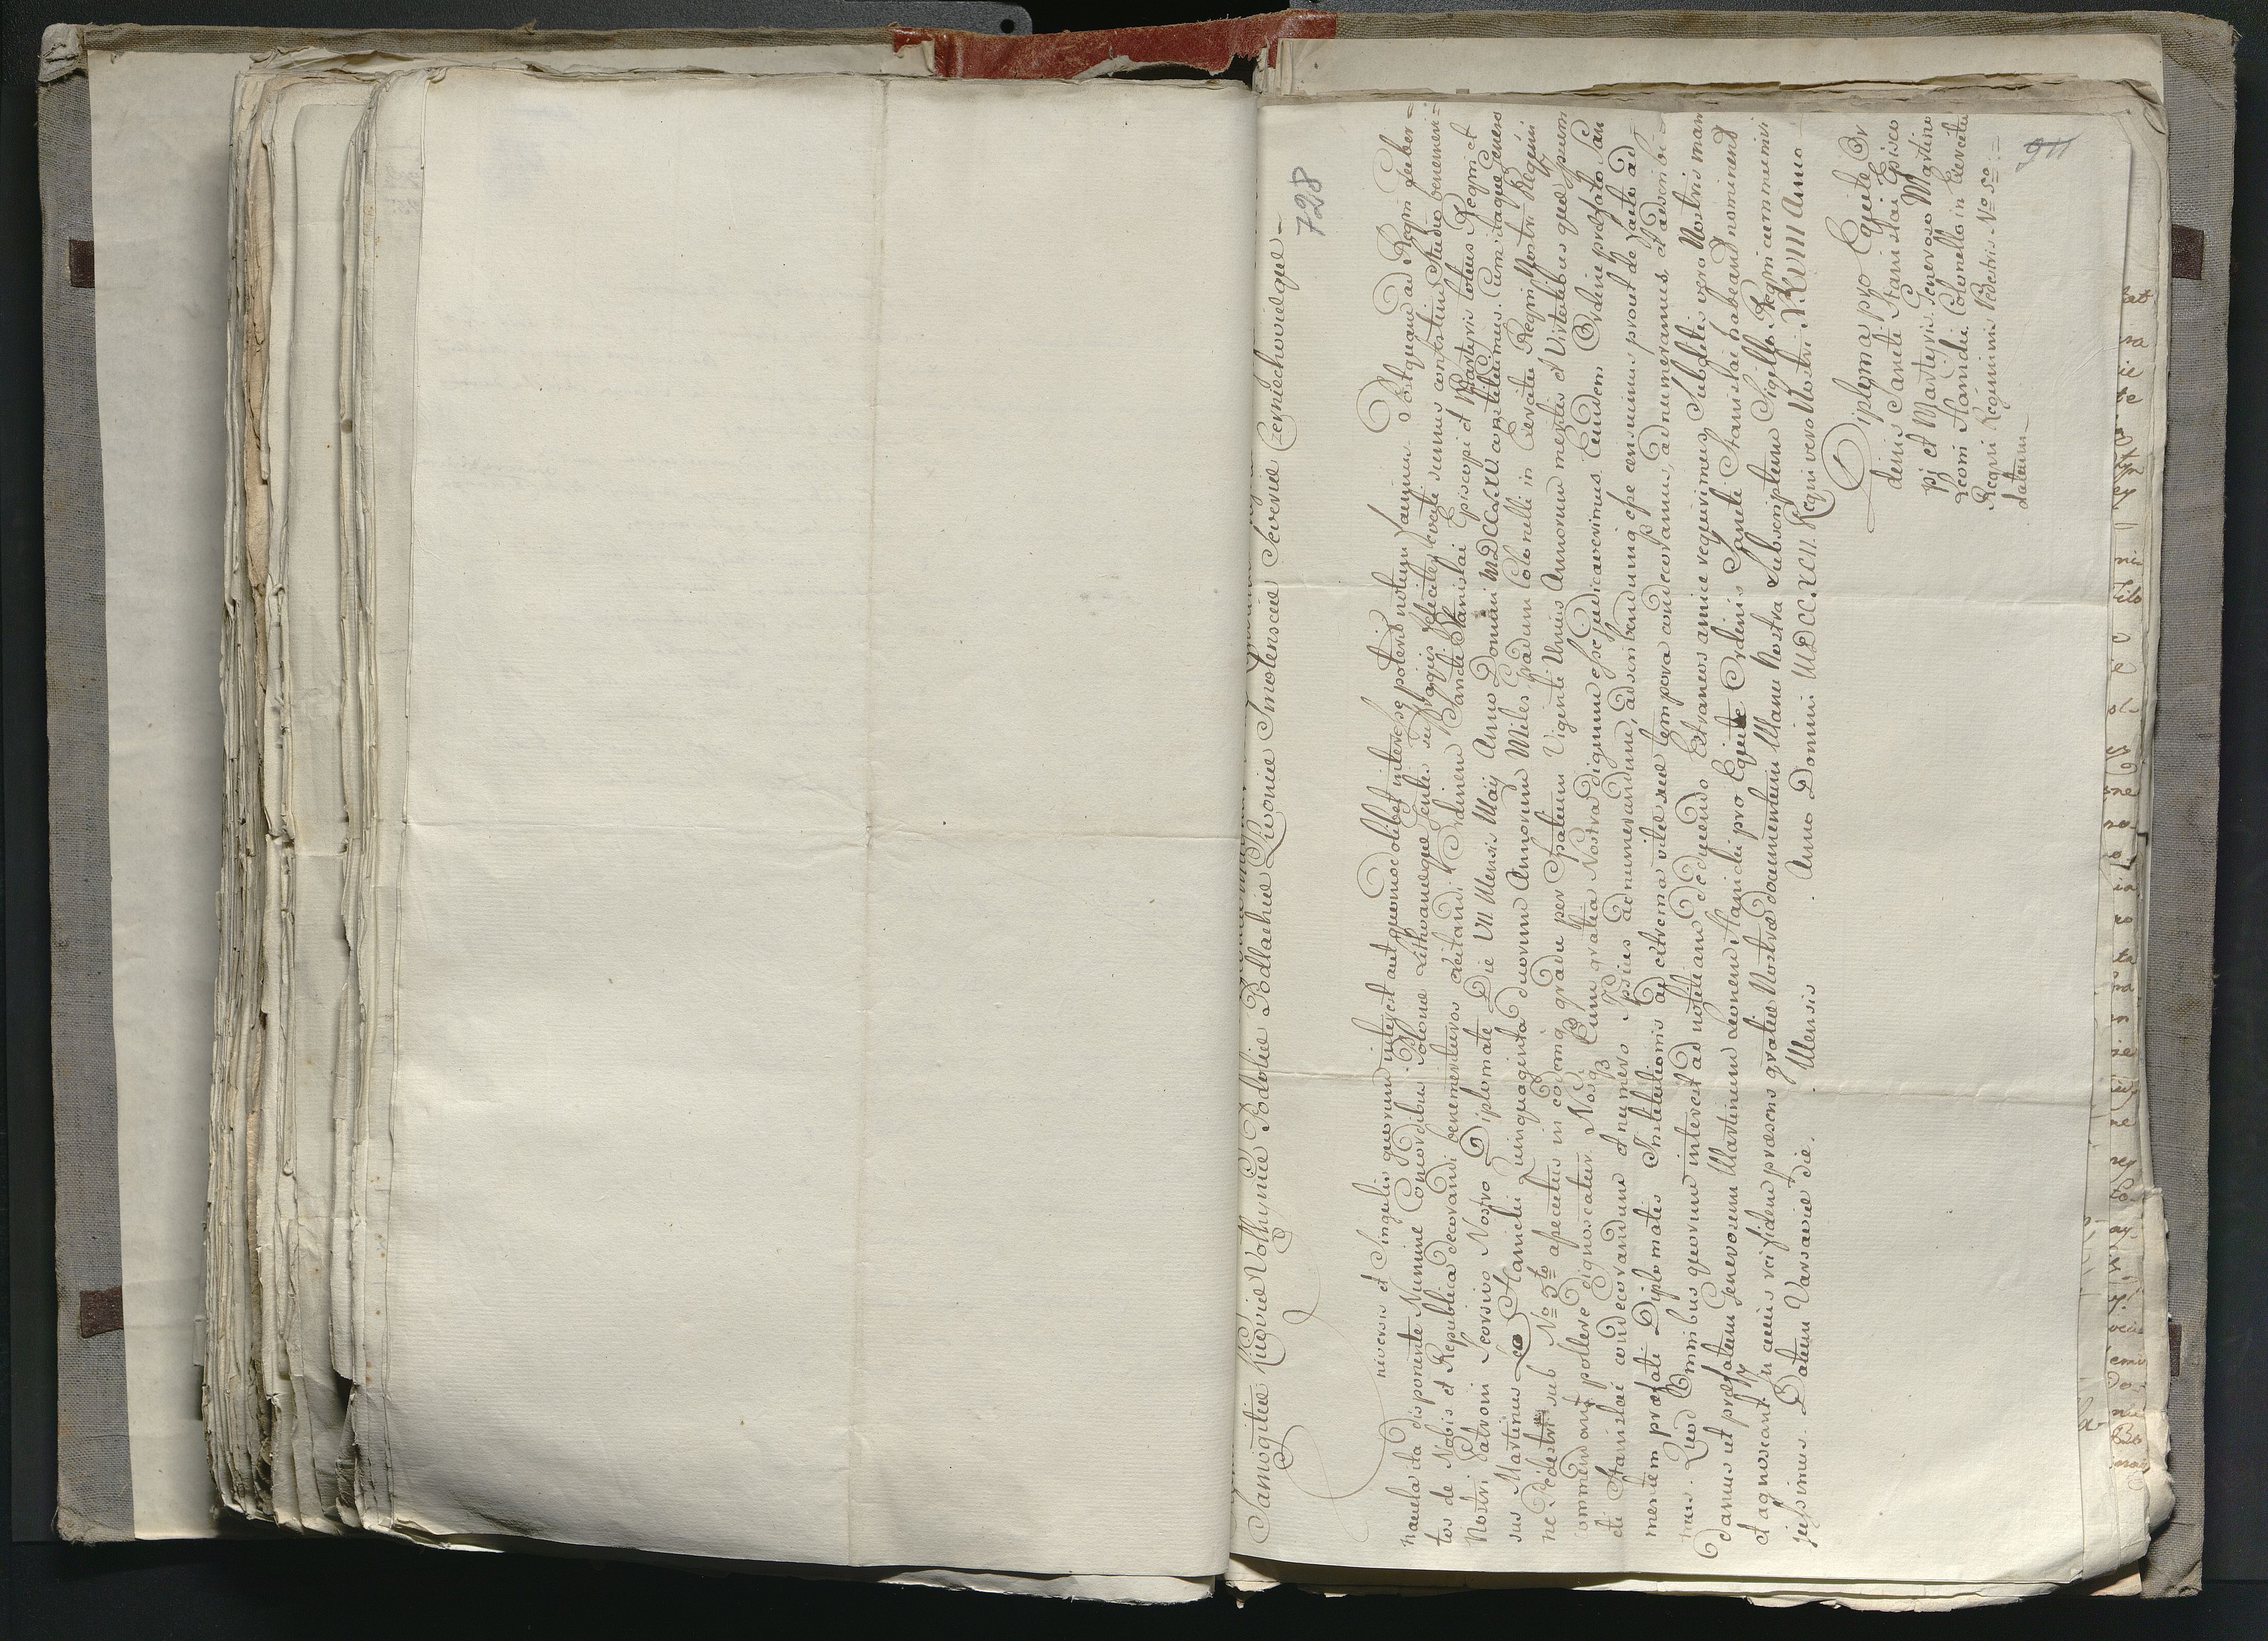 Samogitiæ Kijoviæ Volhyniæ Podoliæ Podlachiæ Livoniæ Smolensciæ Severiæ Czerniechoviæque
728
niversis et Singulis quorum interest aut quomodolibet interesse poterit notum facimus. Postquam ad Regni Guber=
nacula ita disponente Numine Concordibus Polonæ Lithvanæque Gentis suffragijs feliciter evecti sumus constituti Studio benemeri=
tos de Nobis et Republica decorandi benemerituros excitandi Ordinem Sancti Stanislai Episcopi et Martyris totius Regni et
Nostri Patroni Seorsivo Nostro Diplomate Die VII Mensis Maij Anno Domini MDCCLXV constituimus. Cum itaque Genero
sus Martinus Leo Hanicki Quinquaginta duorum Annorum Miles Gradum Colonelli in Exercitu Regni Nostri Regimi
ne Pedestri sub No 5to assecutus in eodemq gradu per Spatium Viginti Unius Annorum meritis et Virtutibus quæ ipsum
commendant pollere dignoscatur. Nosq Eum gratia Nostra dignum esse judicaverimus. Eundem Ordine præfato San
cti Stanislai condecorandum et numero Ipsius adnumerandum, adscribendumq esse censuimus prout de facto ad
mentem præfati Diplomatis Institutionis ad citrema vitæ suæ tempora condecoramus, adnumeramus, et adscribi=
mus. Quod Omnibus quorum interest ad notitiam deducendo Extraneos amice requirimus Subditis vero Nostris man
damus ut præfatum Generosum Martinum Leonem Hanicki pro Equite Ordinis Sancti Stanislai habeant nominent
et agnoscant in cuius rei fidem præsens gratiæ Nostræ documentum Manu Nostra Subscriptum Sigillo Regni communiri
jussimus. Datum Varsaviæ die . Mensis . Anno Domini MDCCXCII. Regni vero Nostri XXVIII Anno
Diploma pro Equite Or
dinis Sancti Stanislai Episco
pj et Martyris Generoso Martino
Leoni Hanicki Colonello in Exercitu
Regni Regiminis Pedestris No 5o =
datum
911